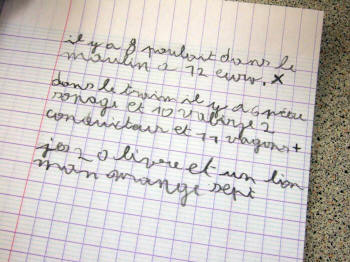 il y a 8 poulout dans le
moulin a 12 euro. x
dans le traim il y a 6 péceu
sonage et 10 valizge 2
conductaur et 11 vagons +
jes 20 livre et un lion
man orange sept